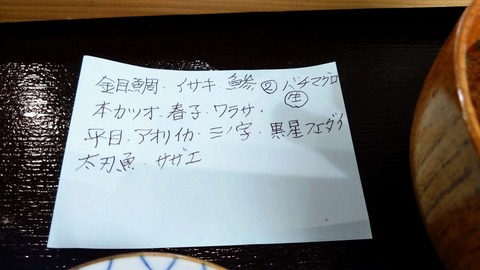 金目鯛・イサキ・鯵・②バチマグロ
生
本カツオ・春子・ワラサ・
平目・アオリイカ・ミノ字・黒星フエダイ
太刀魚・サザエ